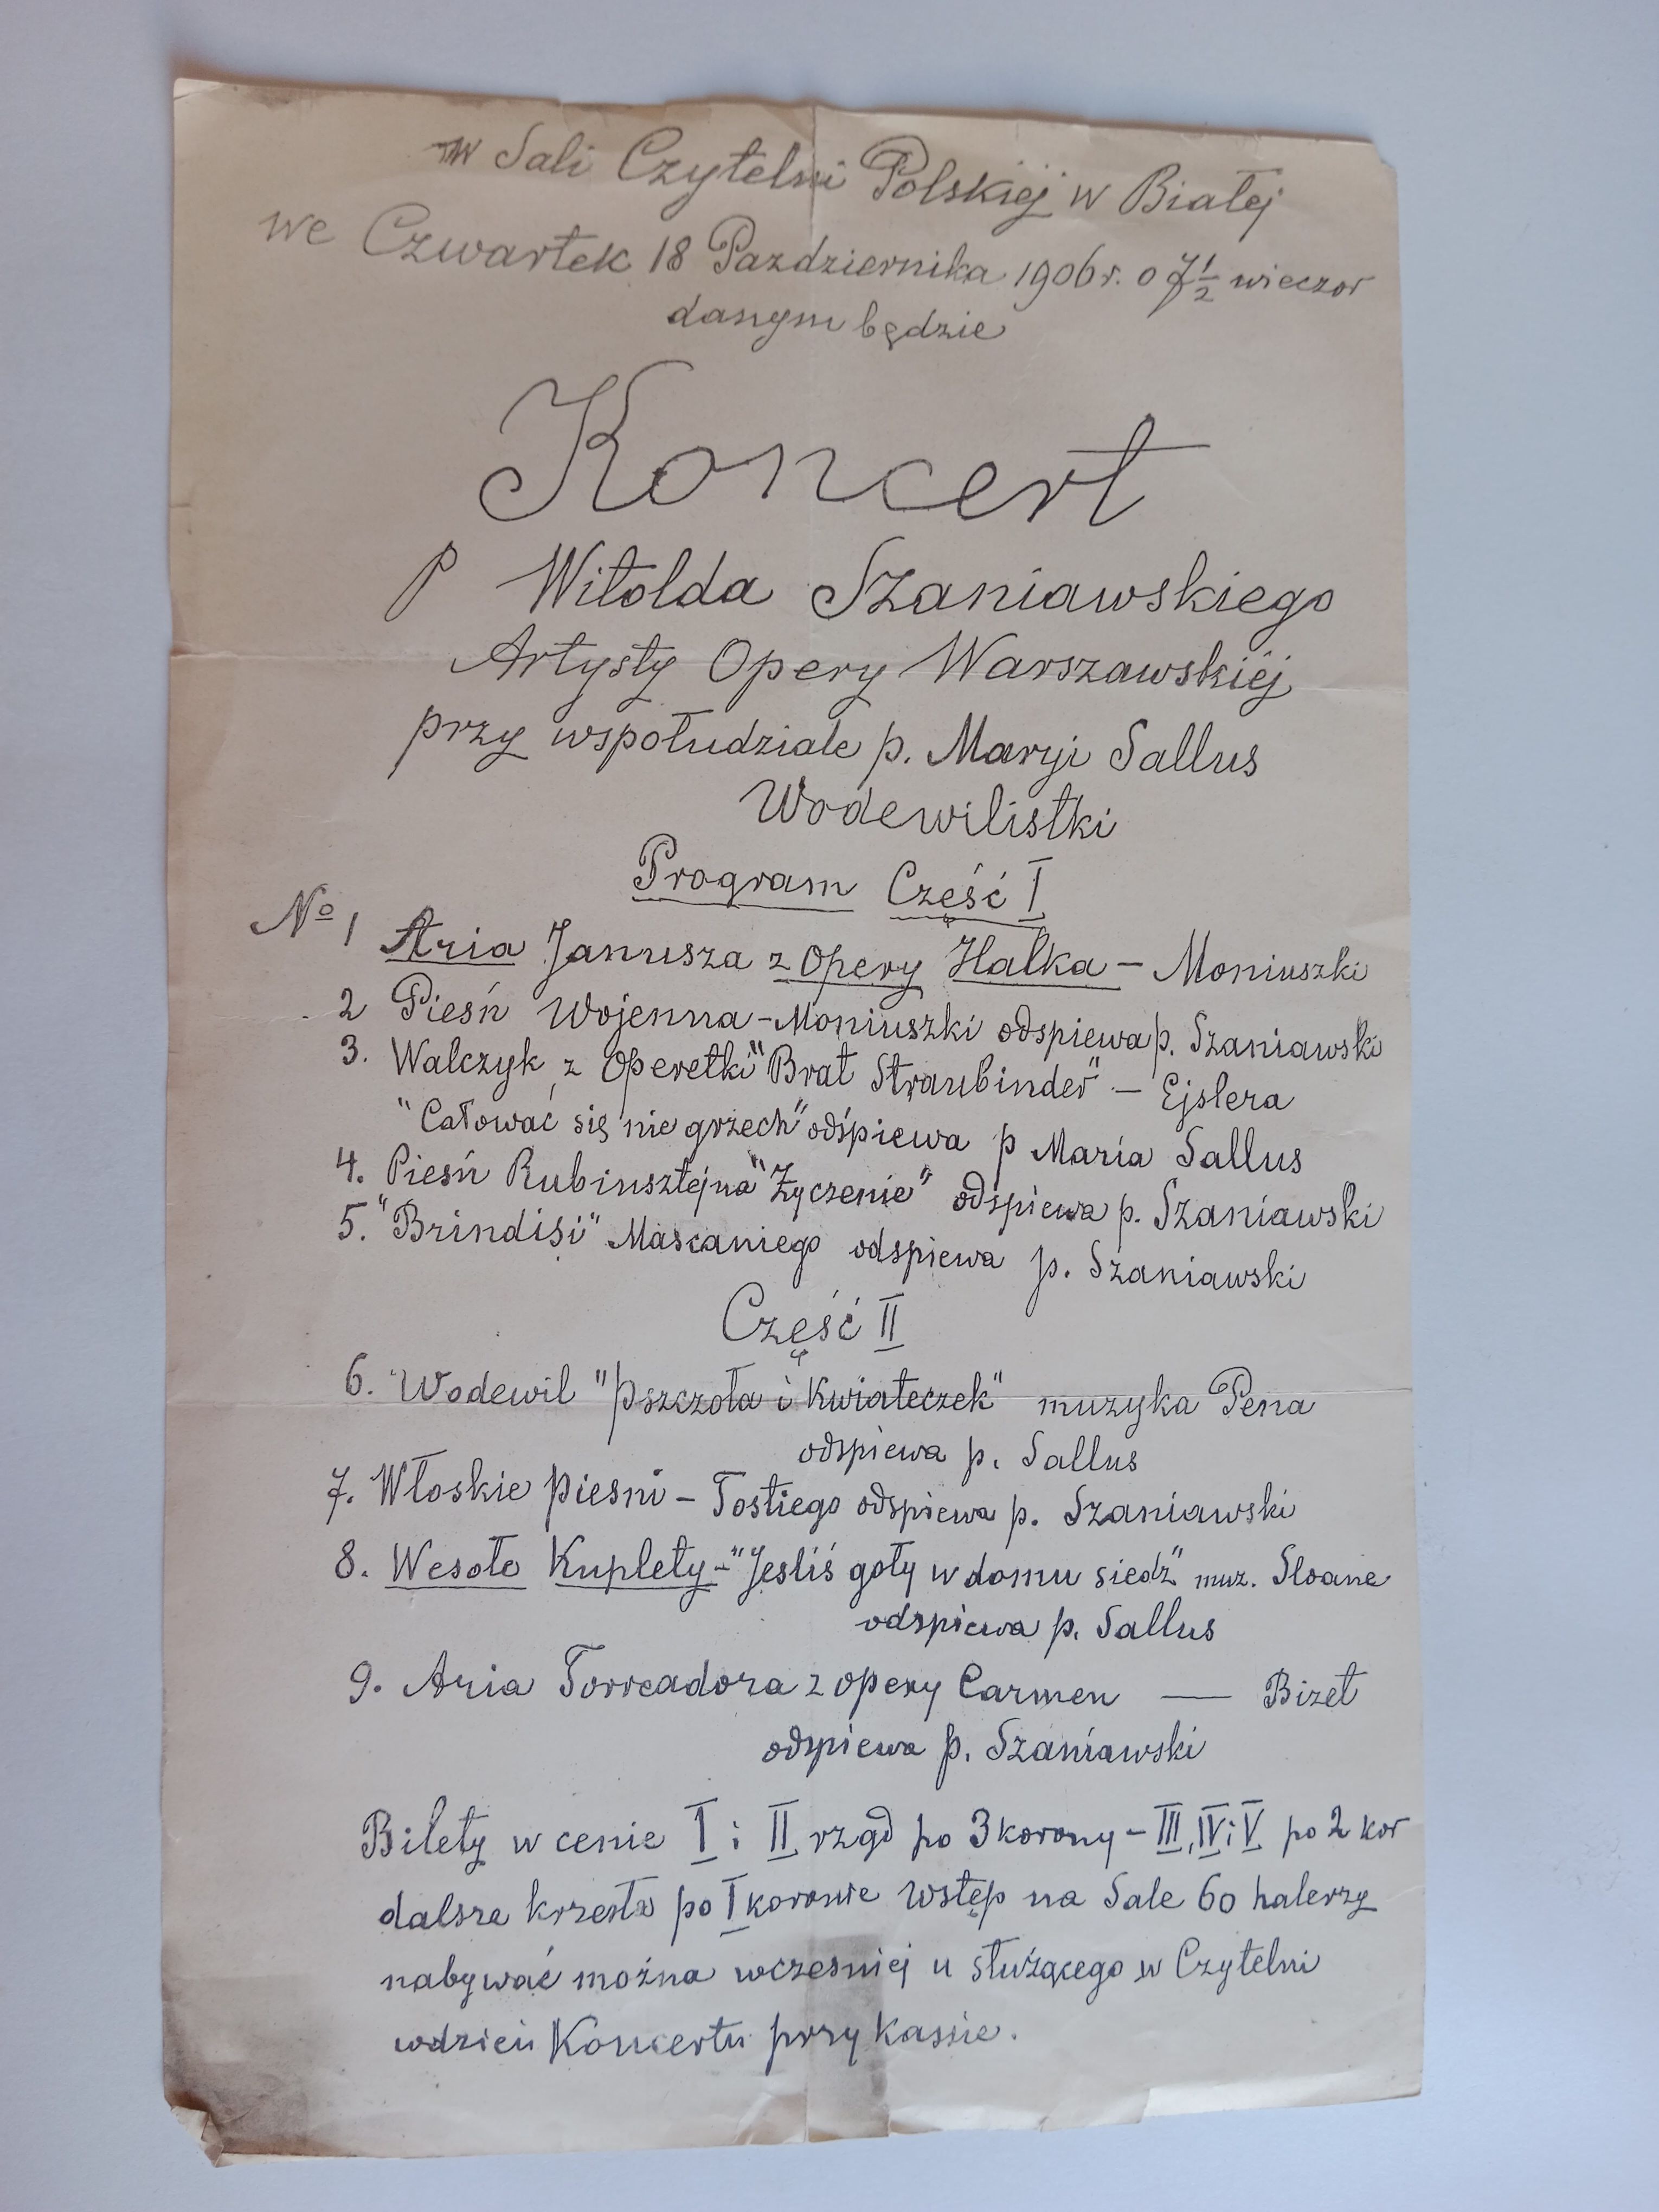 w Sali Czytelni Polskiéj w Białej
we Czwartek 18 Pazdziernika 1906 r. o 7 1/2 wieczor
danym będzie
Koncert
P Witolda Szaniawskiego
Artysty Opery Warszawskiéj
przy wspołudziale p. Maryi Sallus
Wodewilistki
Program Część I
No 1 Aria Janusza z Opery Halka - Moniuszki
2 Pieśń Wojenna - Moniuszki odspiewa p. Szaniawski
3. Walczyk z Operetki "Brat Straubinder" - Ejslera
"Całować się nie grzech" odśpiewa p Maria Sallus
4. Pieśń Rubinsztejna "Życzenie" odspiewa p. Szaniawski
5. "Brindisi" Mascaniego odspiewa p. Szaniawski
Część II
6. Wodewil "Pszczoła i Kwiateczek" muzyka Pena
odspiewa p. Sallus
7. Włoskie Piesni - Tostiego odspiewa p. Szaniawski
8. Wesoło Kuplety - "Jesliś goły w domu siedź" muz. Sloane
odspiewa p. Sallus
9. Aria Torreadora z opery Carmen — Bizet
odspiewa p. Szaniawski
Bilety w cenie I i II rząd po 3 korony - III, IV i V po 2 kor
dalsze krzesła po I koronie Wstęp na Sale 60 halerzy
nabywać można wczesniej u służącego w Czytelni
w dzień Koncertu przy kassie.